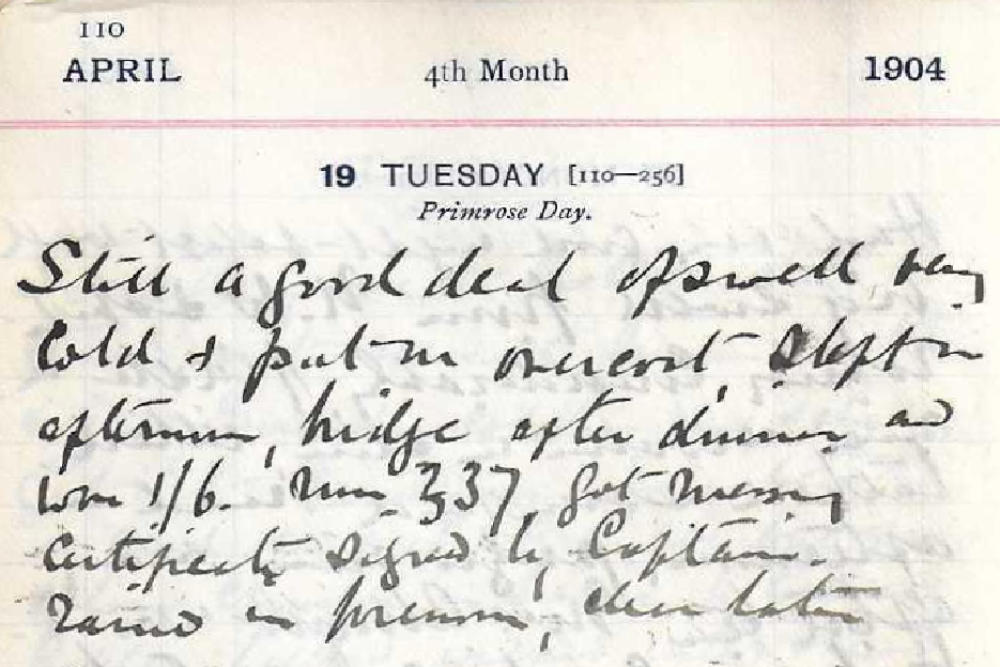 110
APRIL 4th Month 1904
19 TUESDAY [110—256]
Primrose Day.
Still a good deal of swell very
Cold & put on overcoat, Slept in
afternoon, bridge after dinner and
won 1/6. Run 337, got messing
Certificate signed by Captain.
Rained in forenoon, clear later